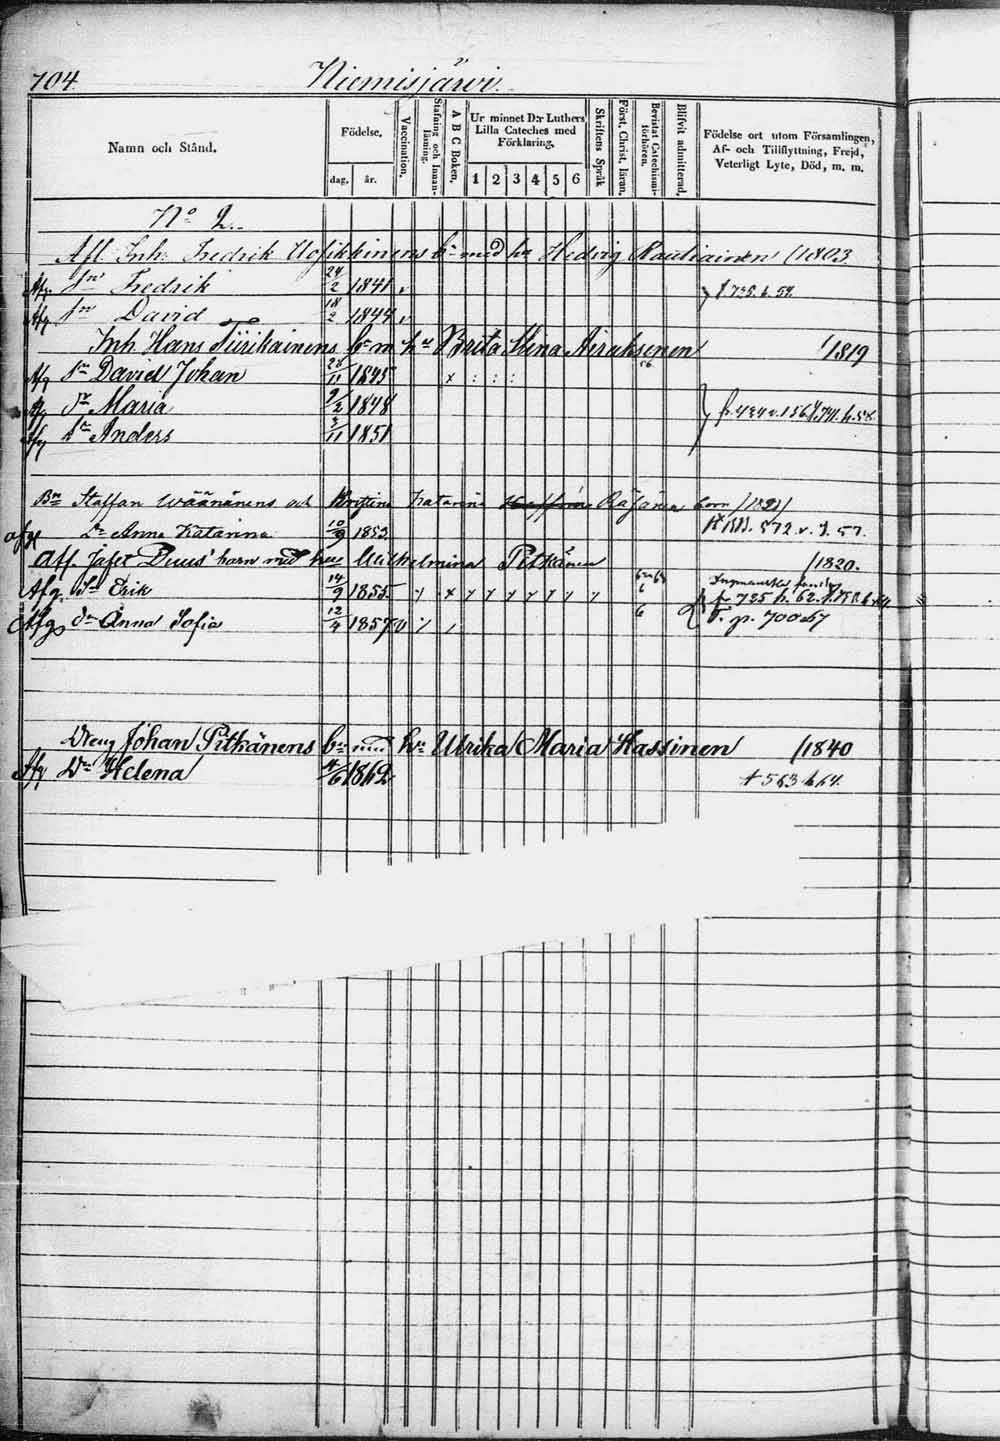 704. Niemisjärvi.
Namn och Stånd.
Födelse.
dag. år.
Vaccination.
Stafning och Innanläsning.
A B C Boken.
Ur minnet D:r Luthers Lilla Cateches med Förklaring.
1 2 3 4 5 6
Skriftens Språk
Först. Christ. läran.
Bevistat Catechismi-förhören.
Blifvit admitterad.
Födelse ort utom Församlingen, Af- och Tillflyttning, Frejd, Veterligt Lyte, Död, m. m.
No 2.
Afl. Inh. Fredrik bn med hu Hedvig Rautiainen /1803
Afg. Sn Fredrik 24/2 1841 v
Afg Sn David 18/2 1844 v
Inh. Hans Tiirikainens bn m hu Brita Stina Airaksinen /1819
Afg Sn David Johan 28/11 1845 x : : : 56
Afg Dr Maria 9/2 1848
Afg Sn Anders 3/11 1851
Bn Staffan Wäänänens och Kristina Katarina Räsänen barn /1821/
Dr Anna Katarina 10/9 1853
Afl. Jafet Duus' barn med hu Wilhelmina Pitkänen /1820.
Afg. Sn Erik 14/9 1855
Afg Dr Anna Sofia 12/4 1857 v
Dreng Johan Pitkänens bn med hu Ulrika Maria Hassinen /1840
Afg Dr Helena 1862 + 563 b. 64.